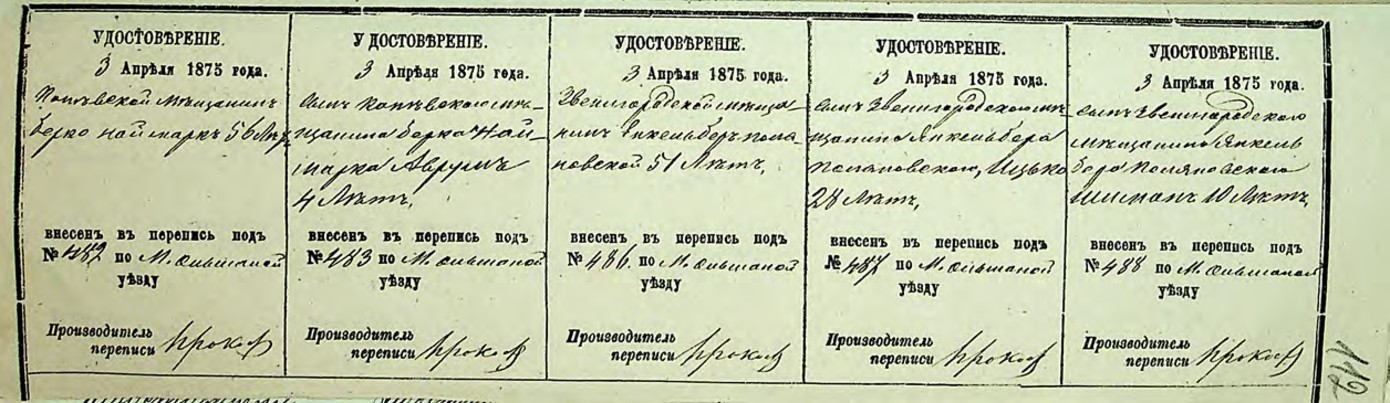 УДОСТОВѢРЕНІЕ.
3 Апрѣля 1875 года.
мѣщанинъ
Берко Наймаркъ 56 Лѣтъ
внесенъ въ перепись подъ
№ 482 по М. Ольшаной
уѣзду
Производитель
переписи
УДОСТОВѢРЕНІЕ.
3 Апрѣля 1875 года.
Сынъ мѣ-
щанина Берка Най-
марка Аврумъ
4 Лѣтъ,
внесенъ въ перепись подъ
№ 483 по М. Ольшаной
уѣзду
Производитель
переписи
УДОСТОВѢРЕНІЕ.
3 Апрѣля 1875 года.
Звенигородской мѣща-
нинъ Янкель Беръ Поля-
новской 51 Лѣтъ,
внесенъ въ перепись подъ
№ 486. по М. Ольшаной
уѣзду
Производитель
переписи
УДОСТОВѢРЕНІЕ.
3 Апрѣля 1875 года.
Сынъ Звенигородского мѣ-
щанина Янкель Бера
Поляновского, Ицько
28 Лѣтъ,
внесенъ въ перепись подъ
№ 487 по М. Ольшаной
уѣзду
Производитель
переписи
УДОСТОВѢРЕНІЕ.
3 Апрѣля 1875 года.
Сынъ Звенигородского
мѣщанина Янкель
Бера Поляновского
Шиманъ 10 Лѣтъ,
внесенъ въ перепись подъ
№ 488 по М. Ольшаной
уѣзду
Производитель
переписи
112